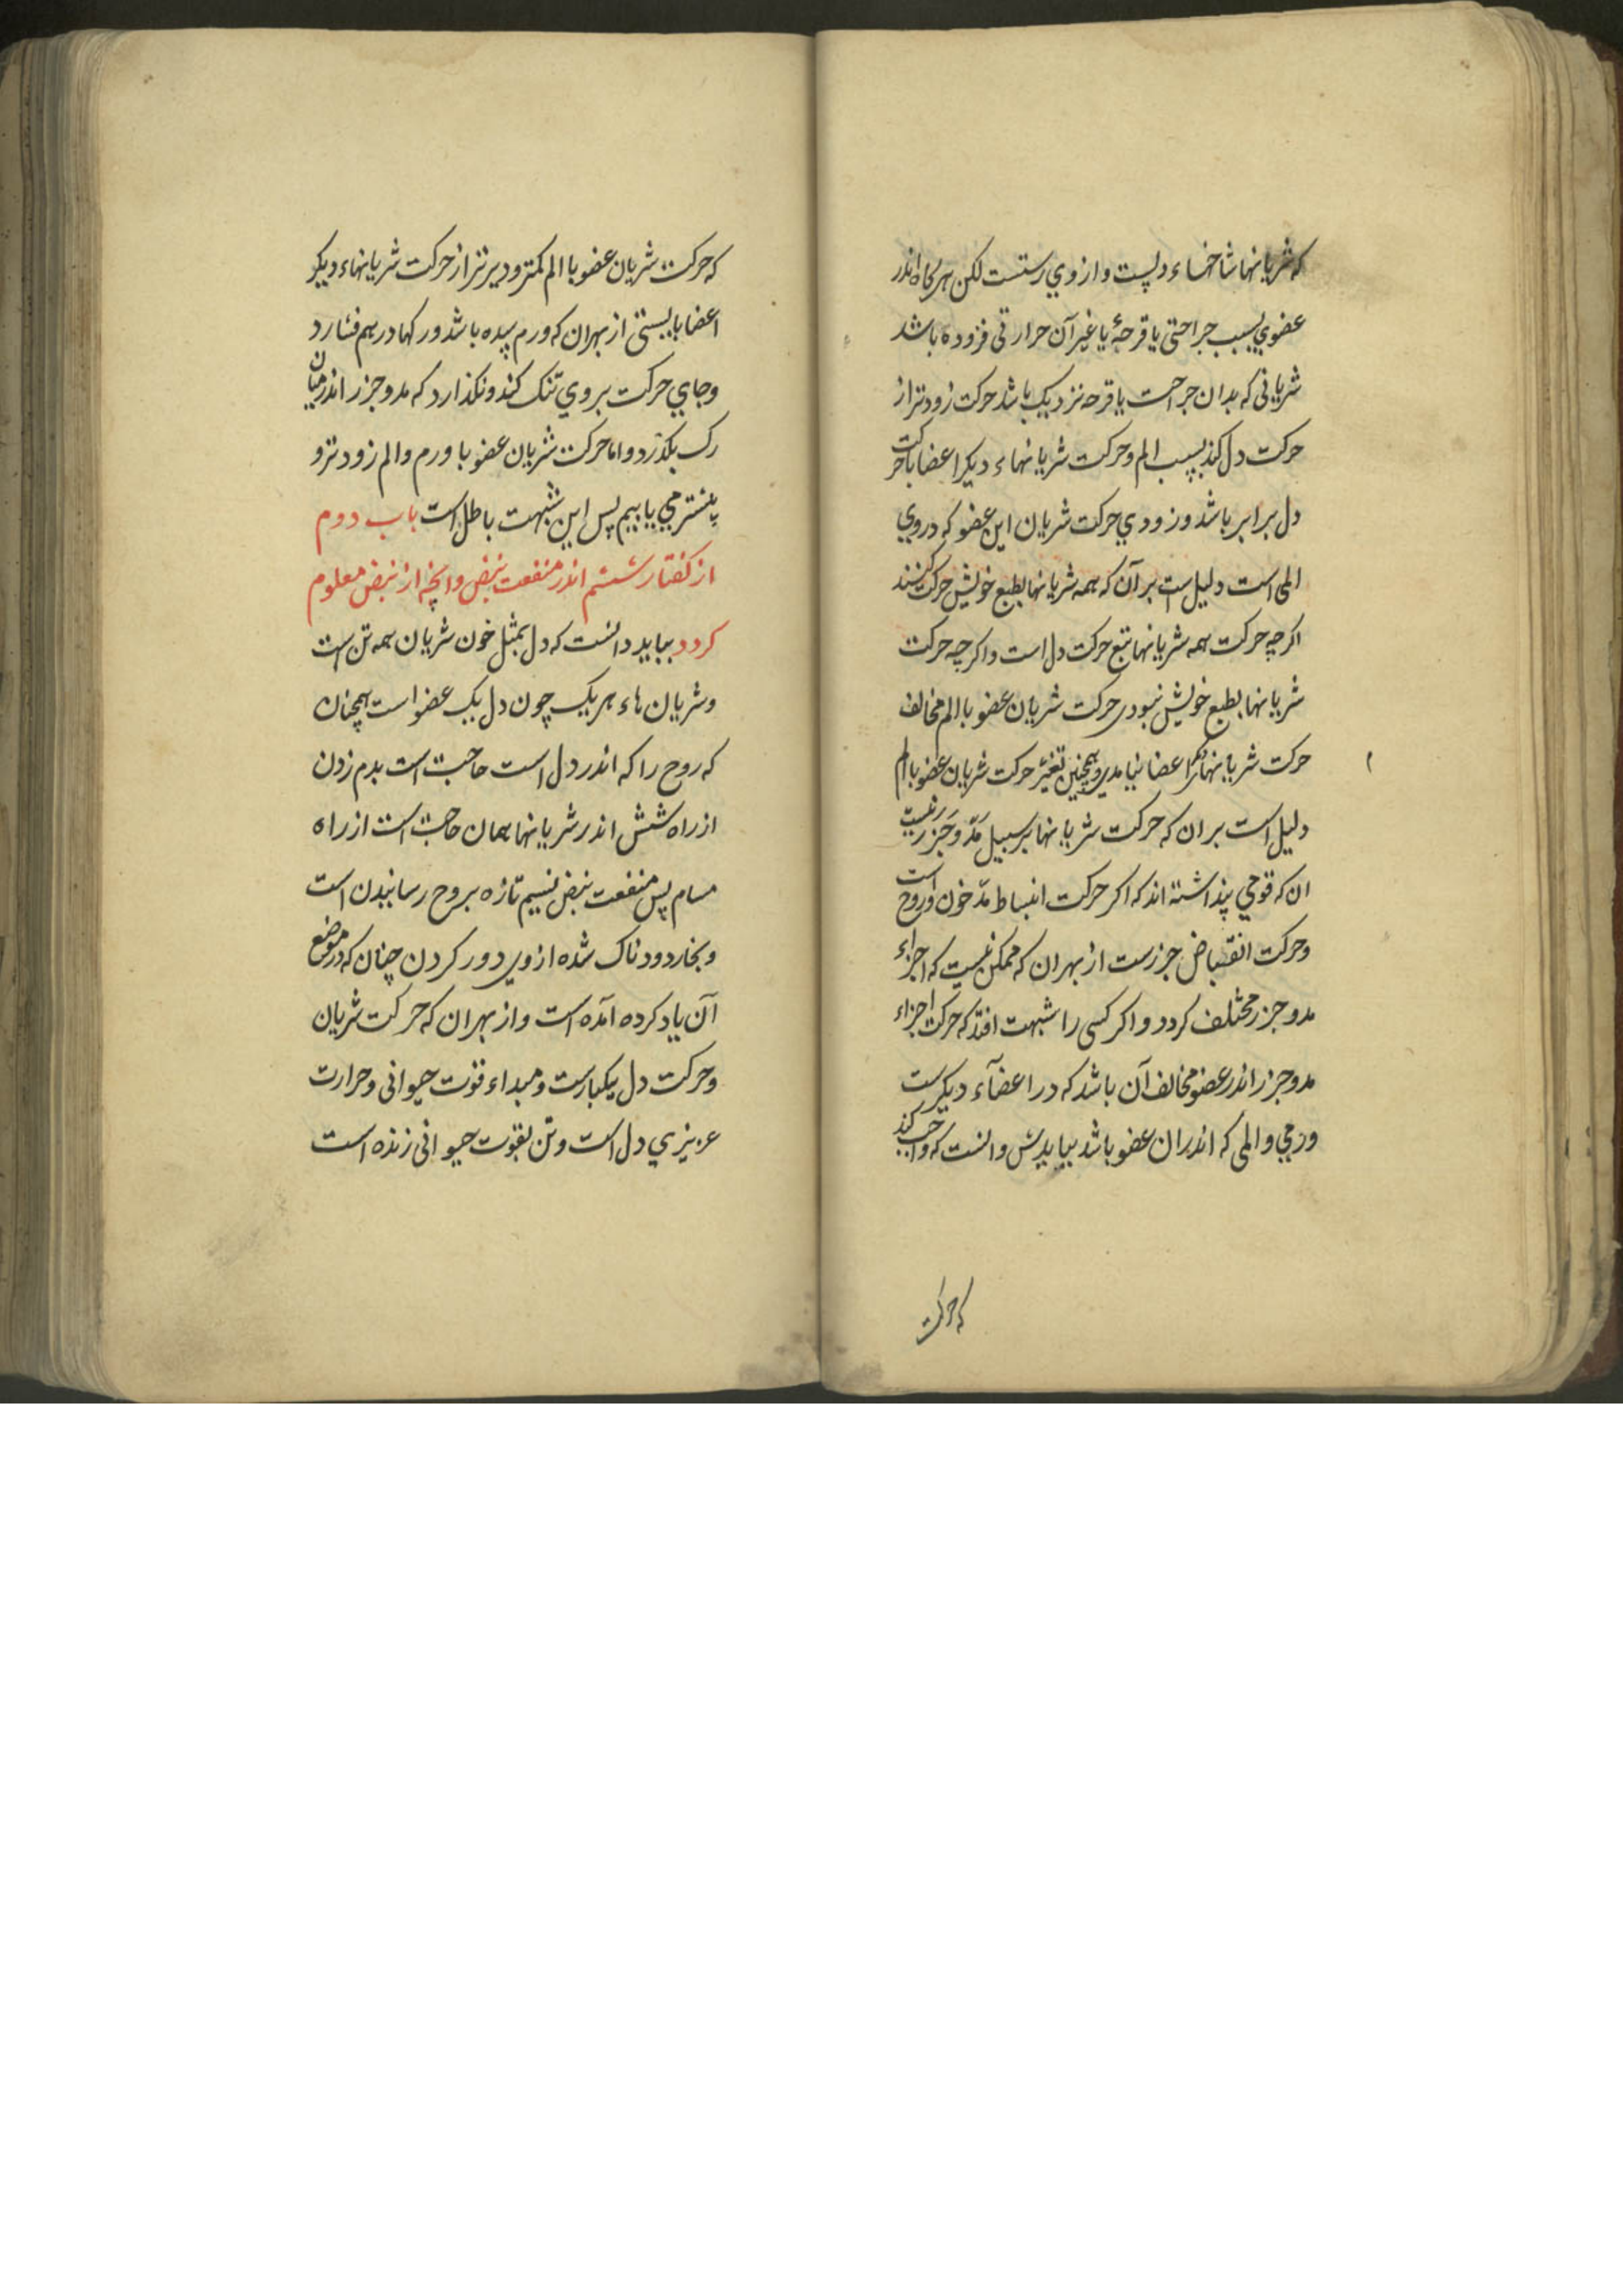 که شریانها شاخهاء دلست و از وي رستست لکن هرگاه اندر
عضوي بسبب جراحتی یا قرحهٔ یا غیر آن حرارتی فزوده باشد
شریانی که بدان جراحت یا قرحه نزدیک باشد حرکت زودتر از
حرکت دل کند بسبب الم و حرکت شریانهاء دیکر اعضا با حرکت
دل برابر باشد و زودي حرکت شریان این عضو که دروي
المی است دلیل است بر آن که همه شریانها بطبع خویش حرکت کنند
اکرچه حرکت همه شریانها تبع حرکت دل است و اکرچه حرکت
شریانها بطبع خویش نبودی حرکت شریان عضو با الم مخالف
حرکت شریانهاء دیکر اعضا نیامدی و همچنین تغیر حرکت شریان عضو با الم
دلیل است بران که حرکت شریانها بر سبیل مدّ و جَزر نیست
ان که قومي پنداشته اند که اکر حرکت انبساط مدّ خون و روح است
و حرکت انقباض جزرست از بهران که ممکن نیست که اجزاء
مد و جزر مختلف کردد و اکر کسی را شبهت افتد که حرکت اجزاء
مد و جزر اندر عضو مخالف آن باشد که در اعضآء دیکرست
ورمي و المی که اندران عضو باشد ببایدش دانست که واجب کند
که حرکت
که حرکت شریان عضو با الم کمتر و دیرتر از حرکت شریانهاء دیکر
اعضا بایستی از بهران که ورم سده باشد و رکها درهم فشارد
و جاي حرکت بروي تنک کند و نکذارد که مد و جزر اندر میان
رک بکذرد و اما حرکت شریان عضو با ورم و الم زودتر و
بیشتر مي یابیم پس این شبهت باطل است باب دوم
از کفتار ششم اندر منفعت نبض و انچه از نبض معلوم
کردد بباید دانست که دل بمثل خون شریان همه تن است
و شریان هاء هر یک چون دل یک عضو است همچنان
که روح را که اندر دل است حاجت است بدم زدن
از راه شش اندر شریانها همان حاجت است از راه
مسام پس منفعت نبض نسیم تازه بروح رسانیدن است
و بخار دودناک شده از وی دور کردن چنان که در موضع
آن یاد کرده آمده است و از بهران که حرکت شریان
و حرکت دل یکبارست و مبداء قوت حیوانی و حرارت
عزیزي دل است و تن بقوت حیوانی زنده است